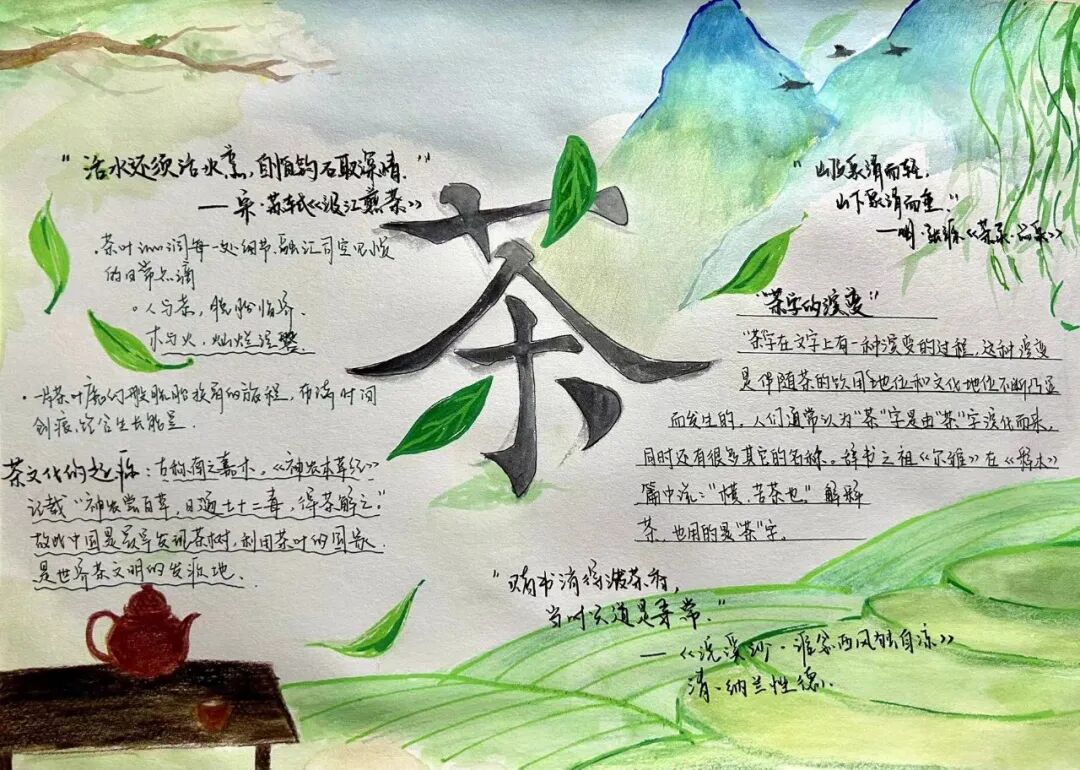 "活水还须活火烹,自临钓石取深情."
—宋·苏轼《汲江煎茶》
·茶叶浸润每一处细节,融汇司空见惯
的日常点滴
。人与茶,
木与火,灿烂涅槃
·一片茶叶
创痕,
茶文化的起源:古称南方嘉木,《神农本草经》
记载"神农尝百草,日遇七十二毒,得茶解之."
故此中国是最早发现茶树,利用茶叶的国家.
是世界茶文明的发源地、
茶
"山顶泉清而轻,
山下泉清而重。"
—明·张源《茶录·品泉》
"茶字的演变"
"茶"字在文字上有一种演变的过程,这种演变
是伴随茶的饮用地位和文化地位不断凸显
而发生的,人们通常认为"茶"字是由"荼"字演化而来,
同时还有很多其它的名称。辞书之祖《尔雅》在《释木》
篇中说:"槚,苦荼也."解释
茶,也用的是"荼"字。
"赌书消得泼茶香,
当时只道是寻常."
—《浣溪沙·谁念西风独自凉》
清·纳兰性德.